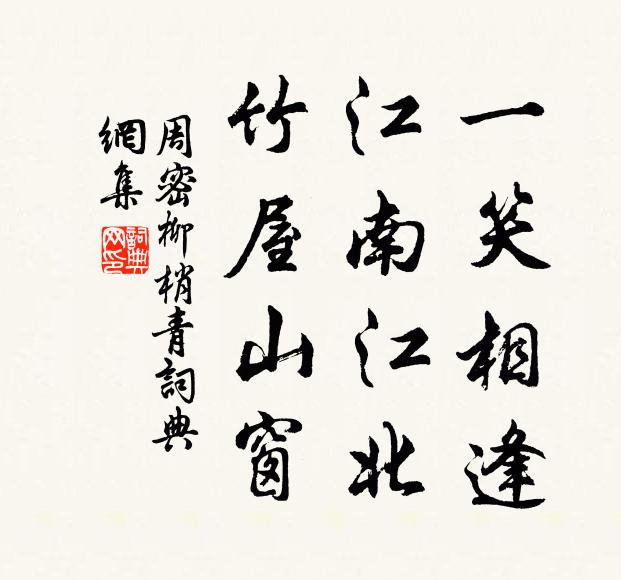 一笑相逢
江南江北
竹屋山窗
周密柳梢青詞典
網集
詞典
网印